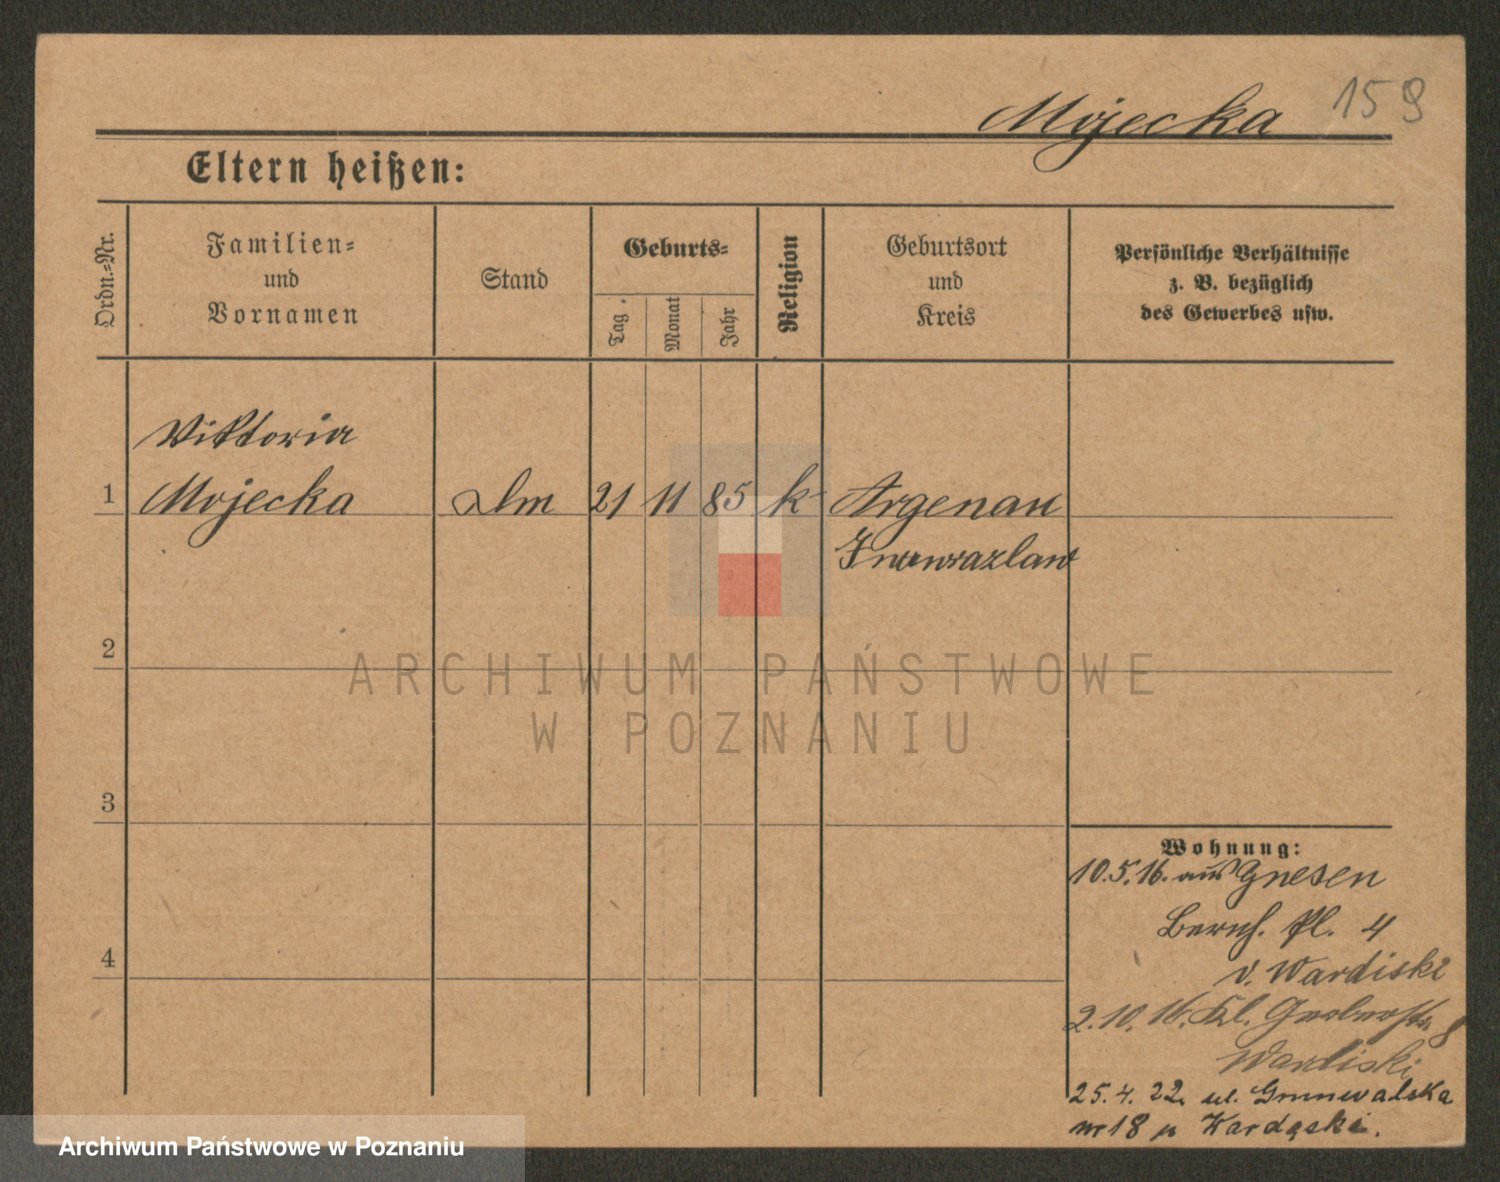 Mojecka 159
Eltern heißen:
Ordn.=Nr.
Familien=
und
Vornamen
Stand
Geburts=
Tag
Monat
Jahr
Religion
Geburtsort
und
Kreis
Persönliche Verhältnisse
z. B. bezüglich
des Gewerbes usw.
Viktoria
1 Mojecka 21 11 85 k Argenau
Inowrazlaw
2
ARCHIWUM PAŃSTWOWE
W POZNANIU
3
Wohnung:
10.5.16. aus Gnesen
4 Bernh. Pl. 4
v. Wardiski
2.10.16. Kl. 8
Wardiski
25.4.22. ul. Grunwalska
nr 18 p Wardąski.
Archiwum Państwowe w Poznaniu